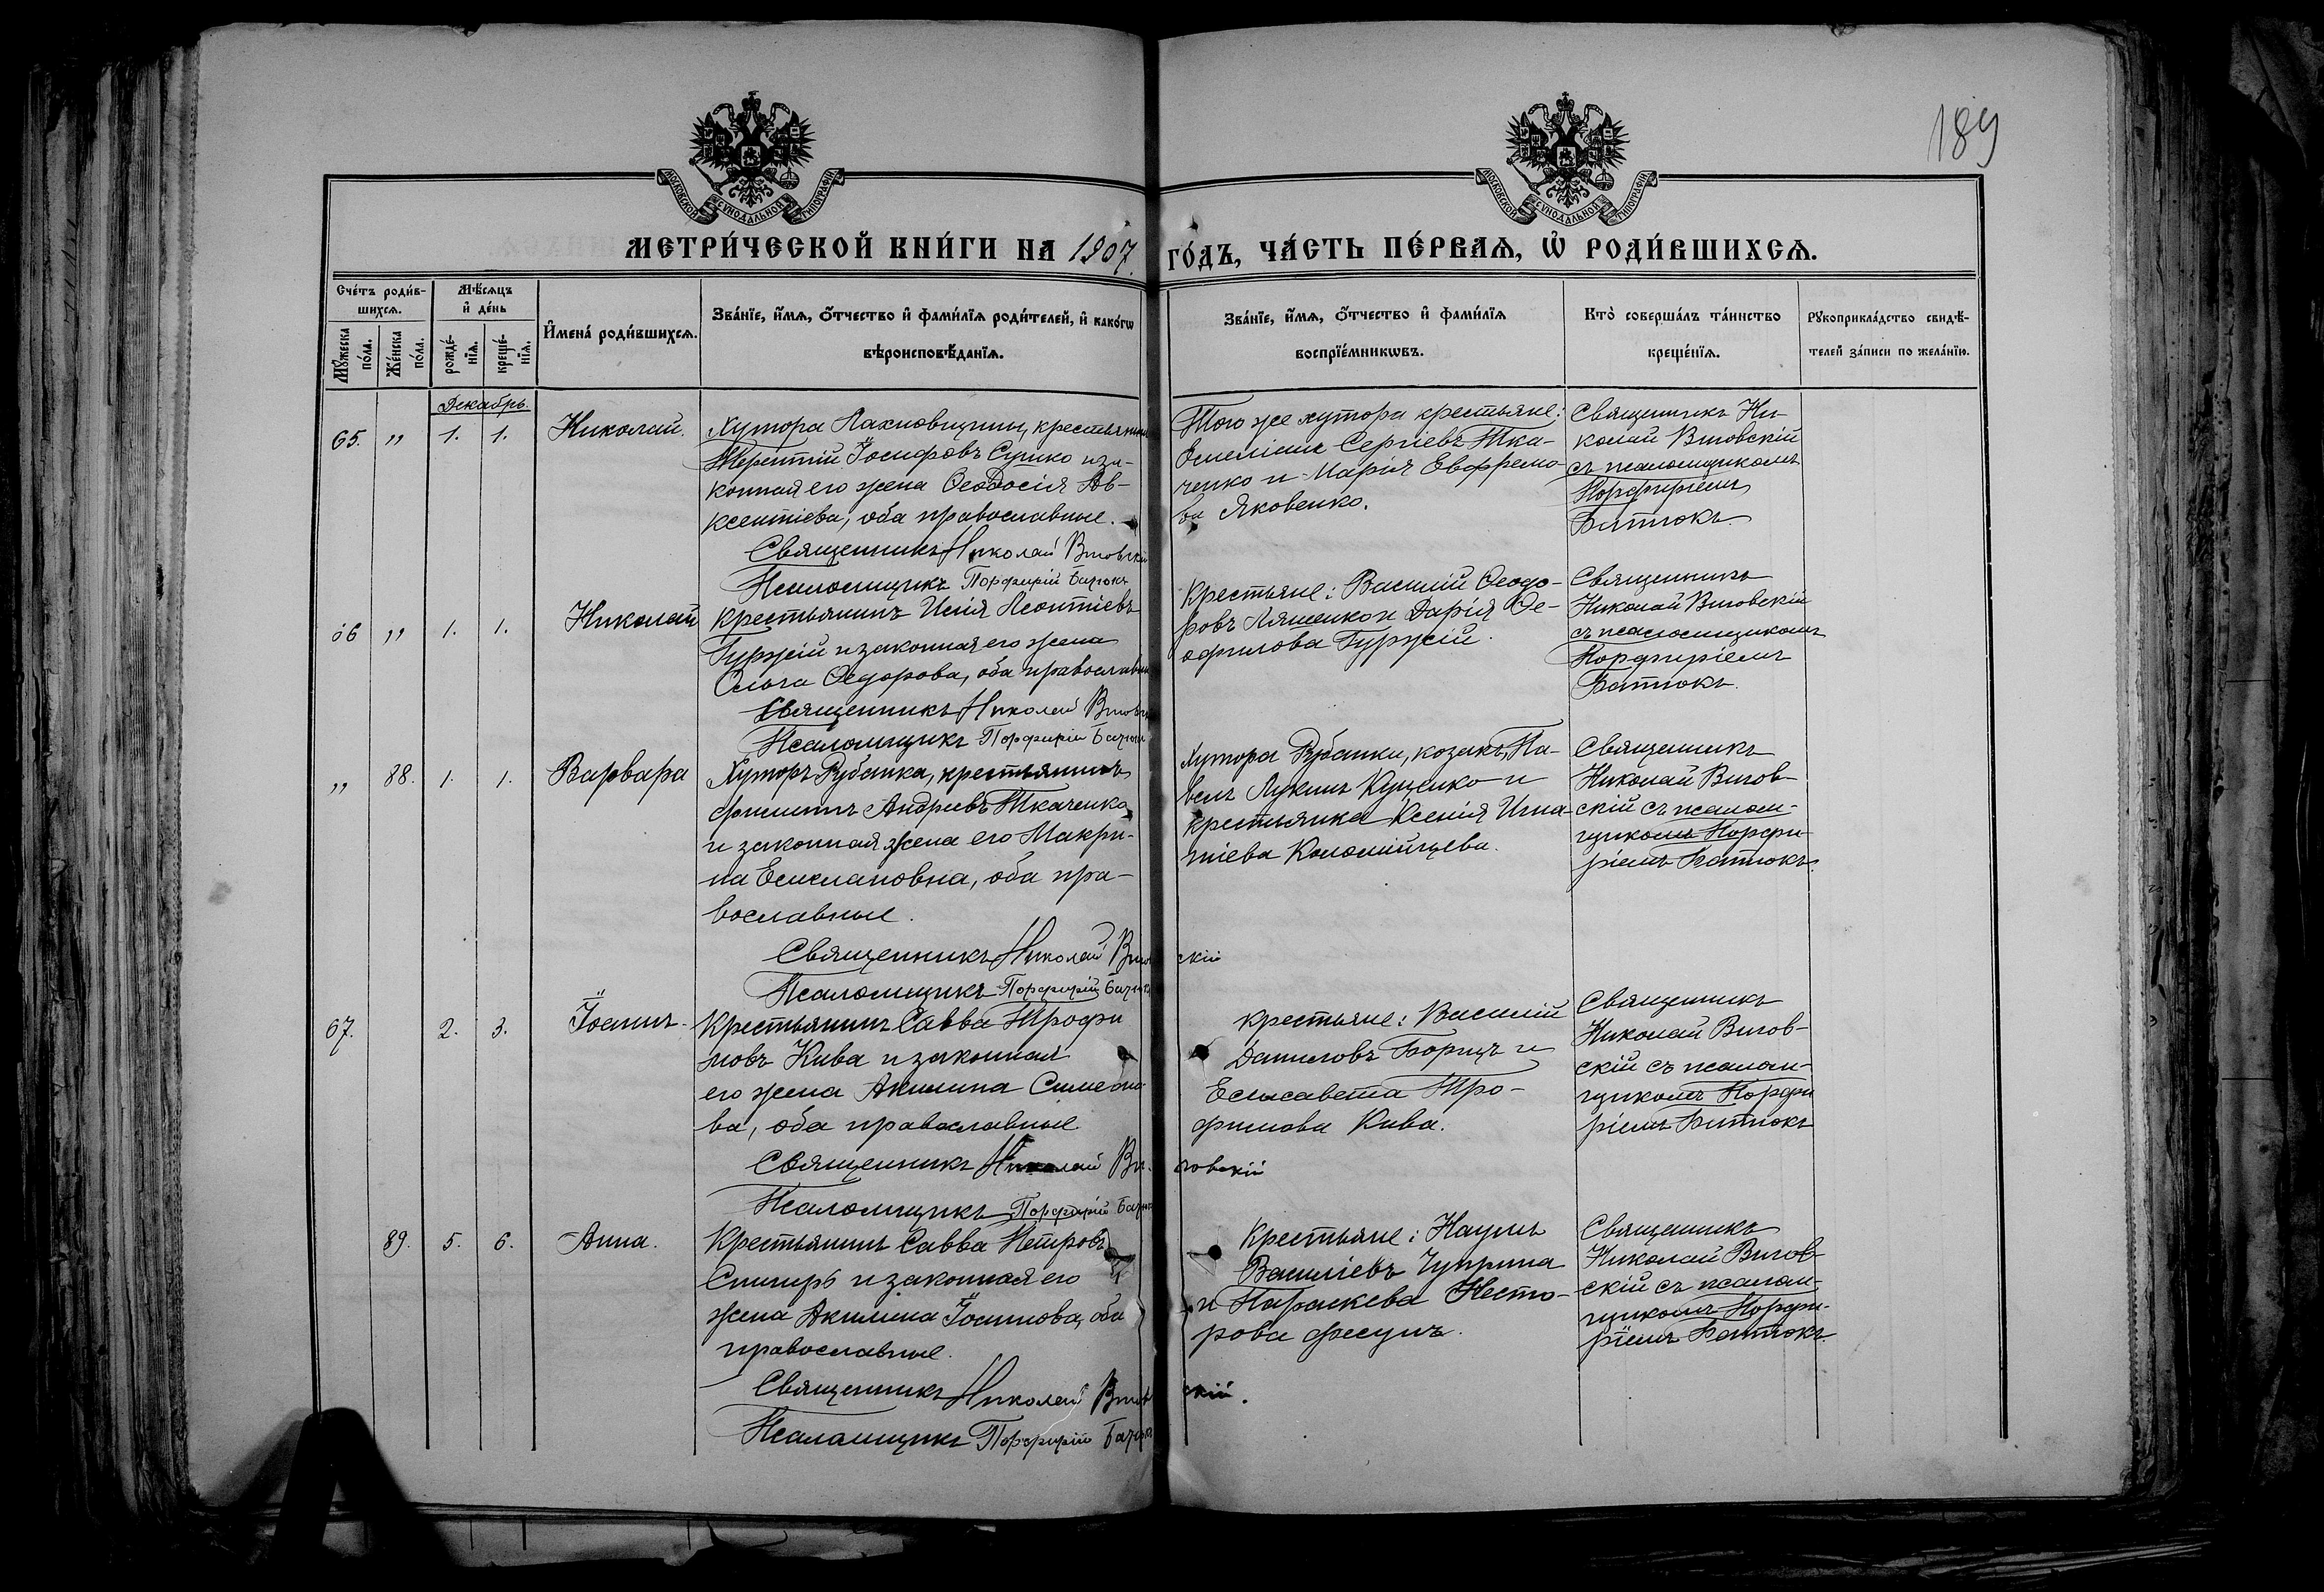 189
МОСКОВСКОЙ СУНОДАЛЬНОЙ ТИПОГРАФІИ
МОСКОВСКОЙ СУНОДАЛЬНОЙ ТИПОГРАФІИ
МЕТРИ́ЧЕСКОЙ КНИ́ГИ НА 1907. ГО́ДЪ, ЧА́СТЬ ПЕ́РВАѦ, Ѡ҆ РОДИ́ВШИХСѦ.
Сче́тъ роди́в-
шихсѧ.
Мꙋ́жеска по́ла.
Же́нска по́ла.
Мѣ́сѧцъ
и҆ де́нь
рожде́-нїѧ.
креще́-нїѧ.
И҆мена̀ роди́вшихсѧ.
Зва́нїе, и҆́мѧ, ѻ҆́тчество и҆ фами́лїѧ роди́телей, и҆ како́гѡ
вѣроисповѣ́данїѧ.
Зва́нїе, и҆́мѧ, ѻ҆́тчество и҆ фами́лїѧ
воспрїе́мникѡвъ.
Кто̀ соверша́лъ та́инство
креще́нїѧ.
Рꙋкоприкла́дство свидѣ́-
телей за́писи по жела́нїю.
Декабрь.
65. " 1. 1. Николай.
Хутора Лахновщины, крестьянинъ
Терентій Іосифовъ Сушко и за-
конная его жена Ѳеодосія Ав-
ксентіева, оба православные.
Священникъ Николай
Псаломщикъ Порфирій Батюкъ
Того же хутора крестьяне:
Сергіевъ Тка-
ченко и Марія Евфремо-
ва Яковенко.
Священникъ Ни-
колай
съ псаломщикомъ
Порфиріемъ
Батюкъ.
66 " 1. 1. Николай
Крестьянинъ Илія Леонтіевъ
Гуржій и законная его жена
Ольга Ѳедорова, оба православные
Священникъ Николай
Псаломщикъ Порфирій Батюкъ
Крестьяне: Василій Ѳеодо-
ровъ Ляшенко и Дарія Ѳе-
офилова Гуржій.
Священникъ
Николай
съ псаломщикомъ
Порфиріемъ
Батюкъ.
" 88. 1. 1. Варвара
Хуторъ Рубанка, крестьянинъ
Филиппъ Андреевъ Ткаченко
и законная жена его Макри-
на Емеліановна, оба пра-
вославные.
Священникъ Николай
Псаломщикъ Порфирій Батюкъ
Хутора Рубанки, козакъ, Па-
велъ Лукинъ Куценко и
крестьянка Ксенія Игна-
тіева Коломійцева.
Священникъ
Николай
скій съ псалом-
щикомъ Порфи-
ріемъ Батюкъ.
67. 2. 3. Іоаннъ.
Крестьянинъ Савва Трофи
мовъ Кива и законная
его жена Акилина Симеоно
ва, оба православные
Священникъ Николай
Псаломщикъ Порфирій Батюкъ
Крестьяне: Василій
Даниловъ Борщъ и
Елисавета Тро-
фимова Кива.
Священникъ
Николай
скій съ псалом-
щикомъ Порфи
ріемъ Батюкъ
89. 5. 6. Анна.
Крестьянинъ Савва Петровъ
и законная его
жена Акилина Іоаннова, оба
православные.
Священникъ Николай
Псаломщикъ Порфирій Батюкъ
Крестьяне: Наумъ
Василіевъ Чуприна
и Параскева Несто-
рова Фесунъ.
Священникъ
Николай
скій съ псалом-
щикомъ Порфи-
ріемъ Батюкъ.